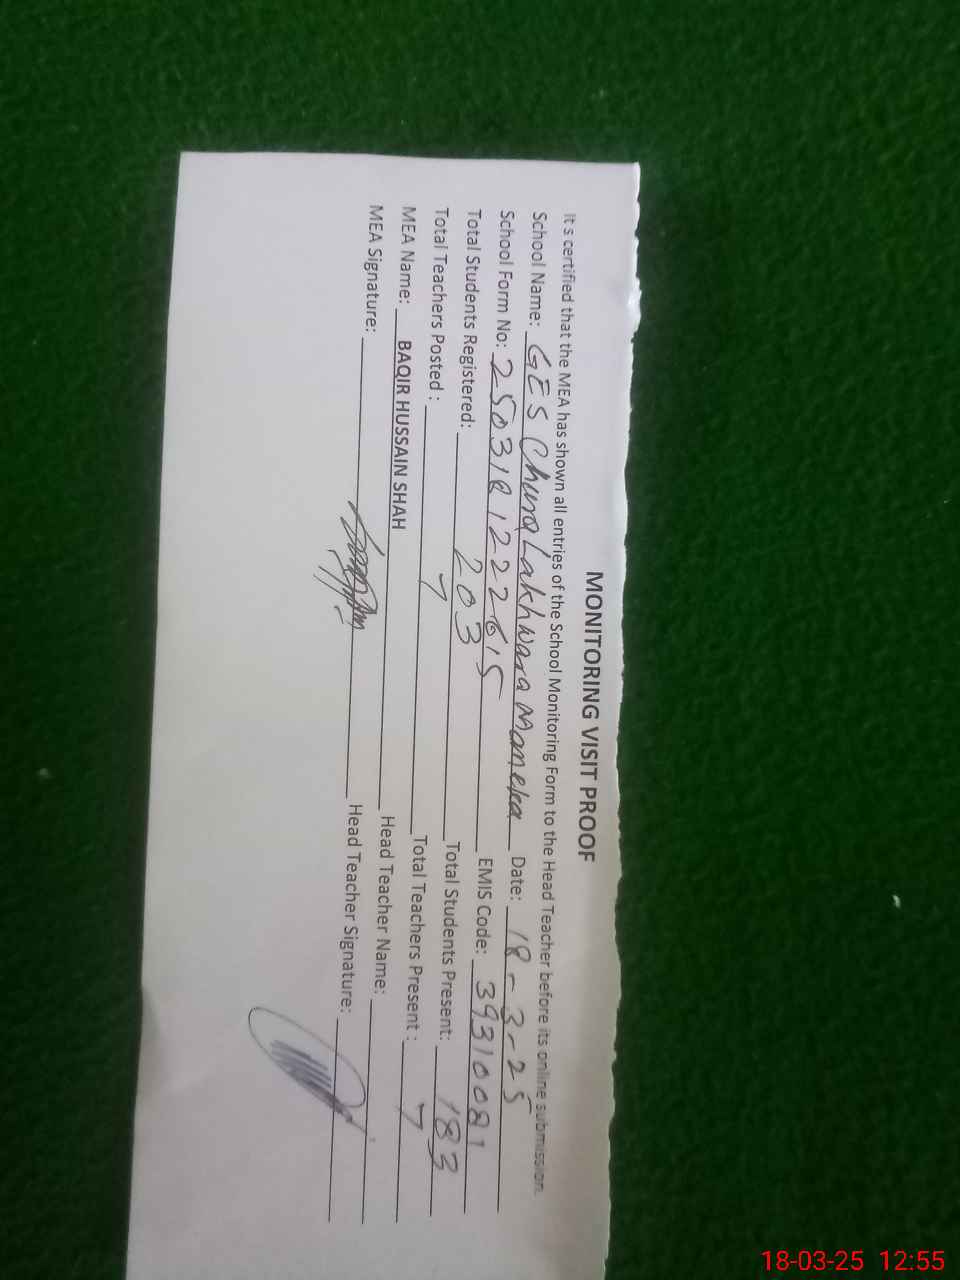 MONITORING VISIT PROOF
It s certified that the MEA has shown all entries of the School Monitoring Form to the Head Teacher before its online submission.
School Name: GES Chura Lakhwara Maneka Date: 18-3-25
School Form No: 2503181222615 EMIS Code: 39310081
Total Students Registered: 203 Total Students Present: 183
Total Teachers Posted : 7 Total Teachers Present : 7
MEA Name: BAQIR HUSSAIN SHAH Head Teacher Name:
MEA Signature: Head Teacher Signature:
18-03-25 12:55